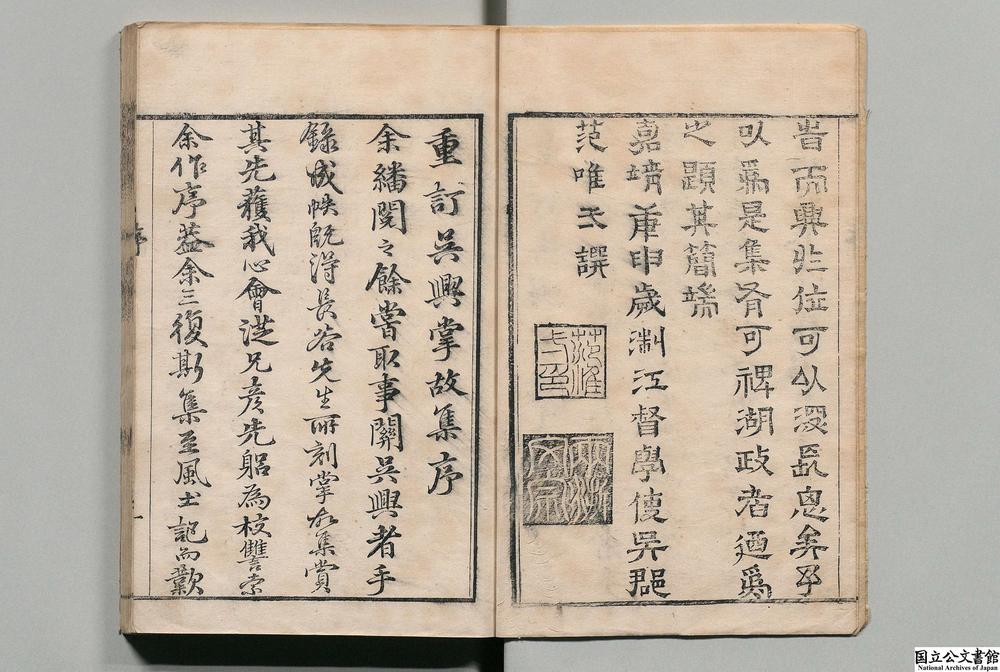 昔而興非位可以沒民思矣予
以爲是集有可裨湖政者迺爲
之題其簡端
嘉靖庚申歲浙江督學使吳郡
范唯一譔
范惟一印
重訂吳興掌故集序
余繙閱之餘嘗取事關吳興者手
錄成帙旣得長谷先生所刻掌故集賞
其先獲我心會從兄彦先躬為校讐索
余作序蓋余三復斯集至風土記而歎
序
一
国立公文書館
National Archives of Japan